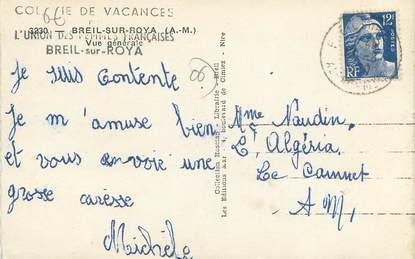 COLONIE DE VACANCES
66
3220 - BREIL-SUR-ROYA (A.-M.)
L'UNION DES FEMMES FRANÇAISES
Vue générale
BREIL-sur-ROYA
06
Je suis contente
Je m'amuse bien
et vous envoie une
grosse caresse
Michèle
Collection Rostan - Librairie - Breil
Les Editions boulevard de Cimiez - Nice
12F
RF
Mme Naudin,
L'Algéria
Le Cannet
A M,